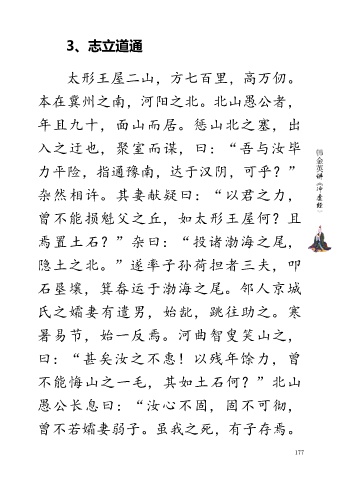 3、志立道通
太形王屋二山，方七百里，高万仞。
本在冀州之南，河阳之北。北山愚公者，
年且九十，面山而居。惩山北之塞，出
入之迂也，聚室而谋，曰：“吾与汝毕
力平险，指通豫南，达于汉阴，可乎？”
杂然相许。其妻献疑曰：“以君之力，
曾不能损魁父之丘，如太形王屋何？且
焉置土石？”杂曰：“投诸渤海之尾，
隐土之北。”遂率子孙荷担者三夫，叩
石垦壤，箕畚运于渤海之尾。邻人京城
氏之孀妻有遗男，始龀，跳往助之。寒
暑易节，始一反焉。河曲智叟笑山之，
曰：“甚矣汝之不惠！以残年馀力，曾
不能悔山之一毛，其如土石何？”北山
愚公长息曰：“汝心不固，固不可彻，
曾不若孀妻弱子。虽我之死，有子存焉。
韩金英讲《冲虚经》
177